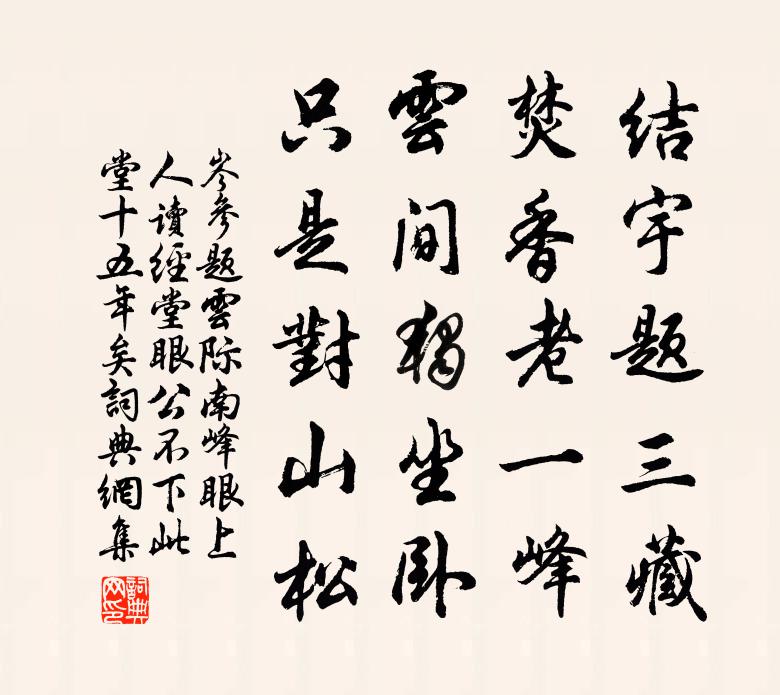 结宇题三藏
焚香老一峰
雲间獨坐卧
只是對山松
岑參题雲际南峰眼上
人讀經堂眼公不下此
堂十五年矣詞典網集
詞典网印